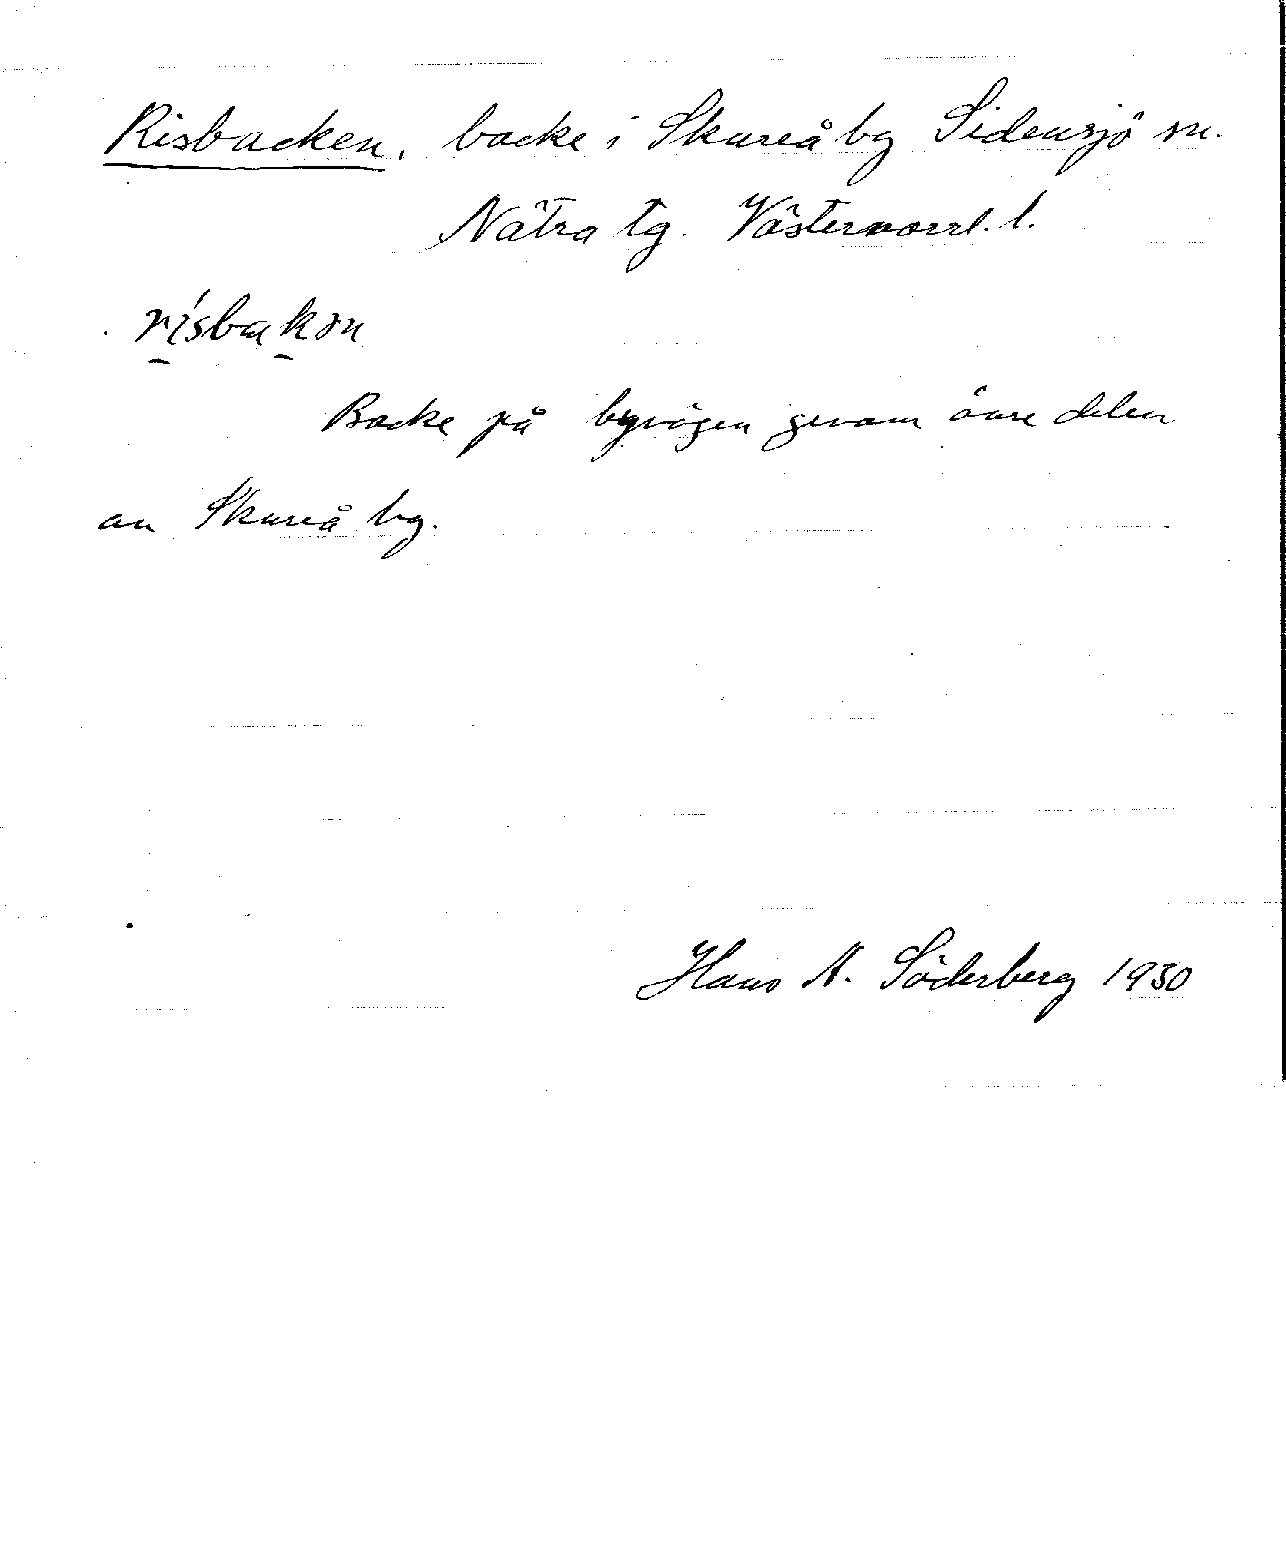 Risbacken, backe i Skureå by Sidensjö sn.
Nätra tg. Västernorrl. l.
risbakon
Backe på byvägen genom övre delen
av Skureå by.
Hans A. Söderberg 1930